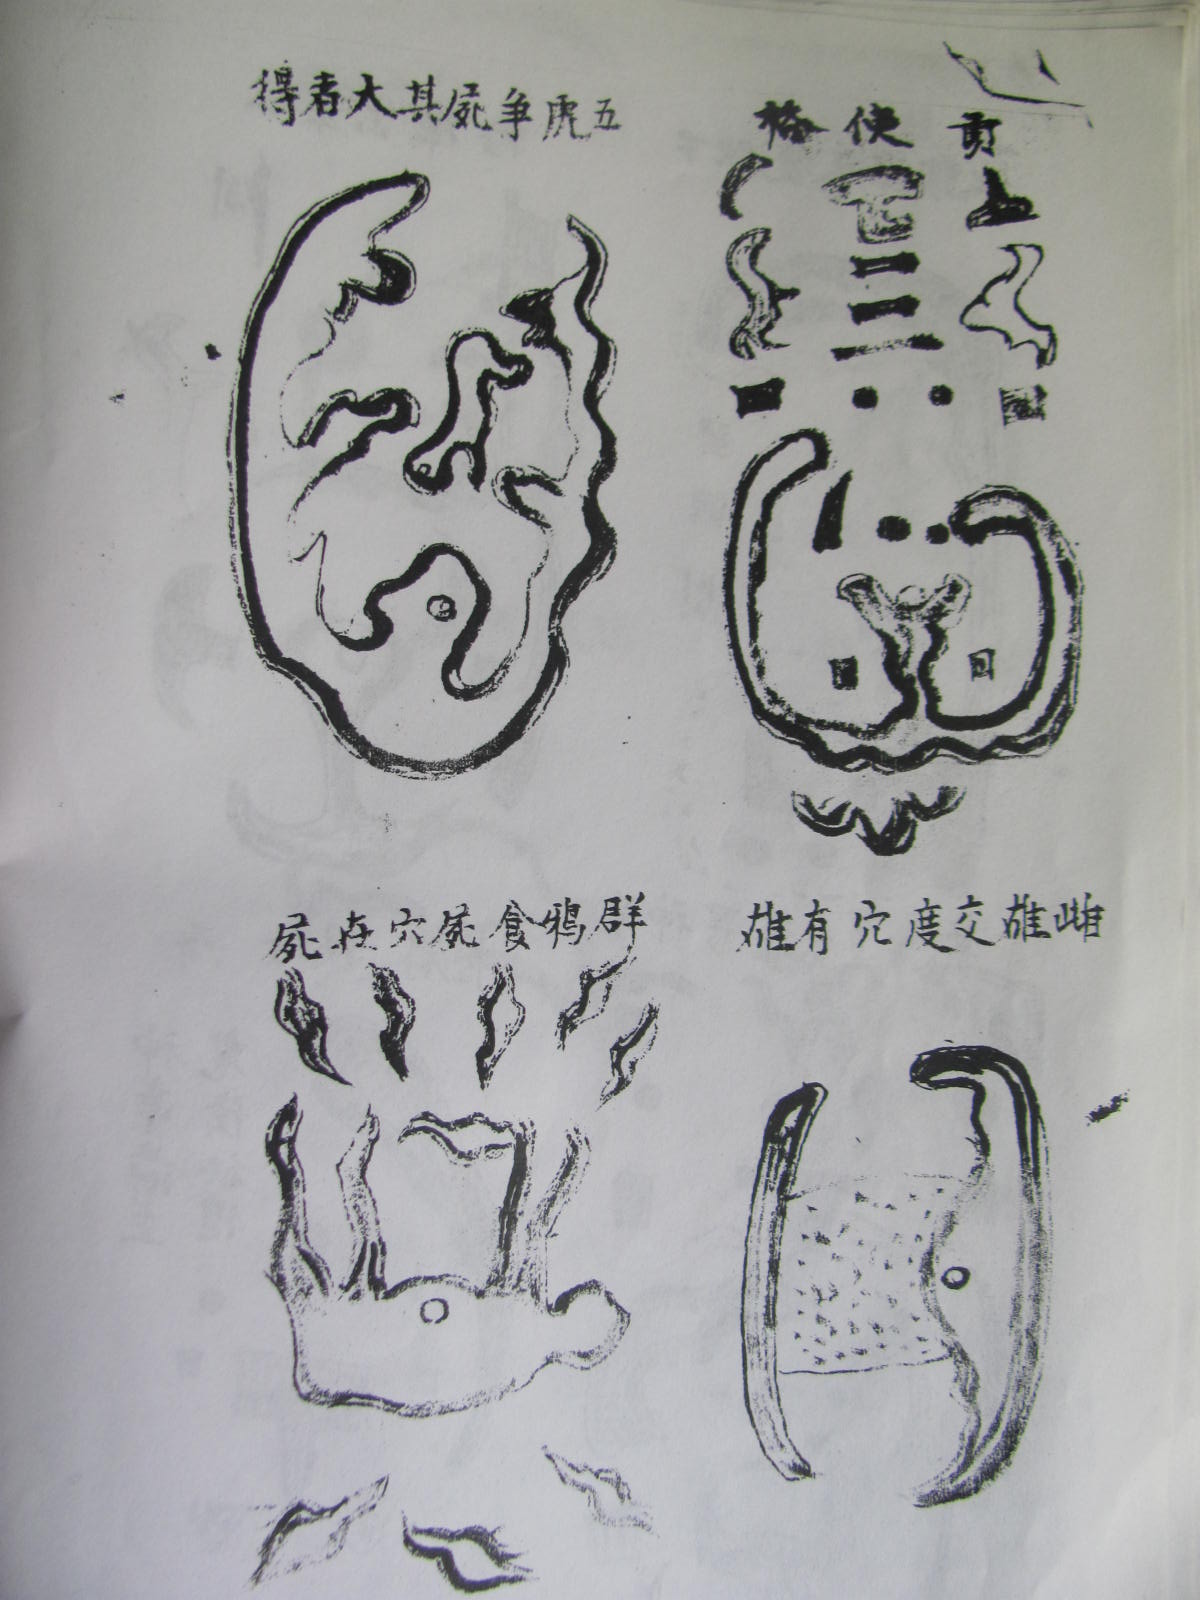 使
五虎爭屍其大者得
雌雄交度穴有雄
群鴉食屍穴在屍